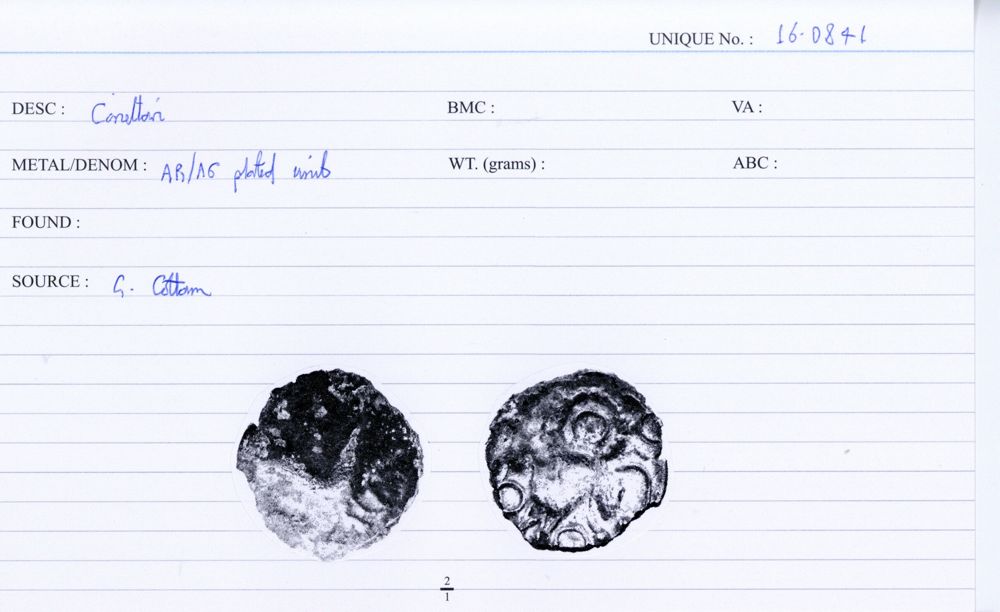 UNIQUE No. : 16-0841
DESC : BMC : VA :
METAL/DENOM : AR/AE plated unit WT. (grams) : ABC :
FOUND :
SOURCE : G. Cottam
2
1